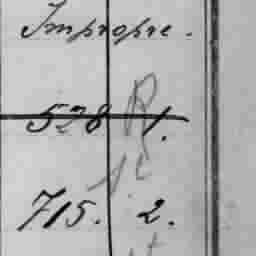 Impropre.
528 1.
715. 2.